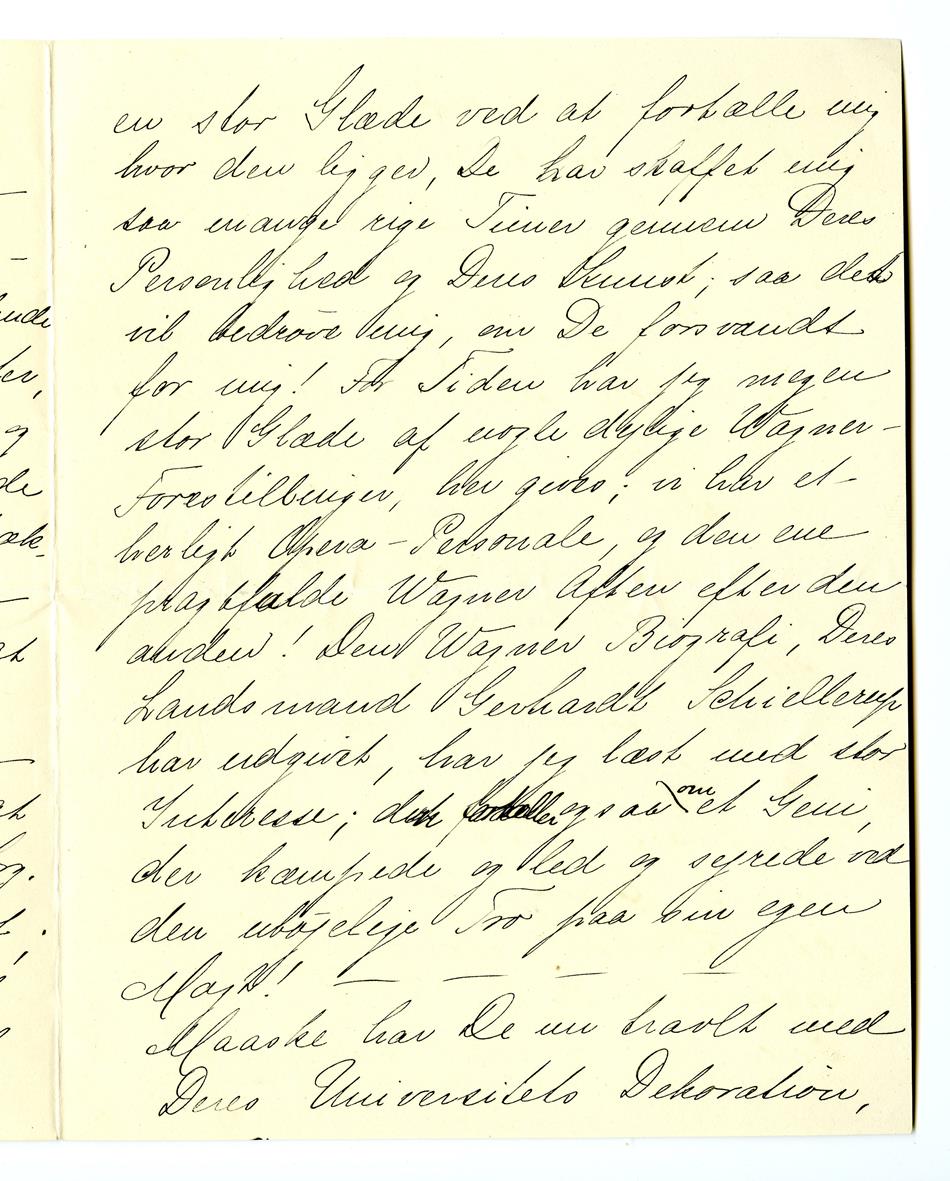 en stor Glæde ved at fortælle mig
hvor den ligger, De har skaffet mig
saa mange rige Timer gennem Deres
Personlighed og Deres Kunst; saa det
vil bedrøve mig, om De forsvandt
for mig! For Tiden har jeg megen
stor Glæde af nogle dejlige Wagner-
Forestillinger, her gives; vi har et
herligt Opera-Personale, og den ene
pragtfulde Wagner Aften efter den
anden! Den Wagner Biografi, Deres
Landsmand Gerhardt Schiellerup
har udgivet, har jeg læst med stor
Interesse; den fortæller ogsaa om et Geni,
der kæmpede og led og sejrede ved
den ubøjelige Tro paa sin egen
Magt! — — — —
Maaske har De nu travlt med
Deres Universitets Dekoration,
ende
er,
og
de
æk-
at
at
og.